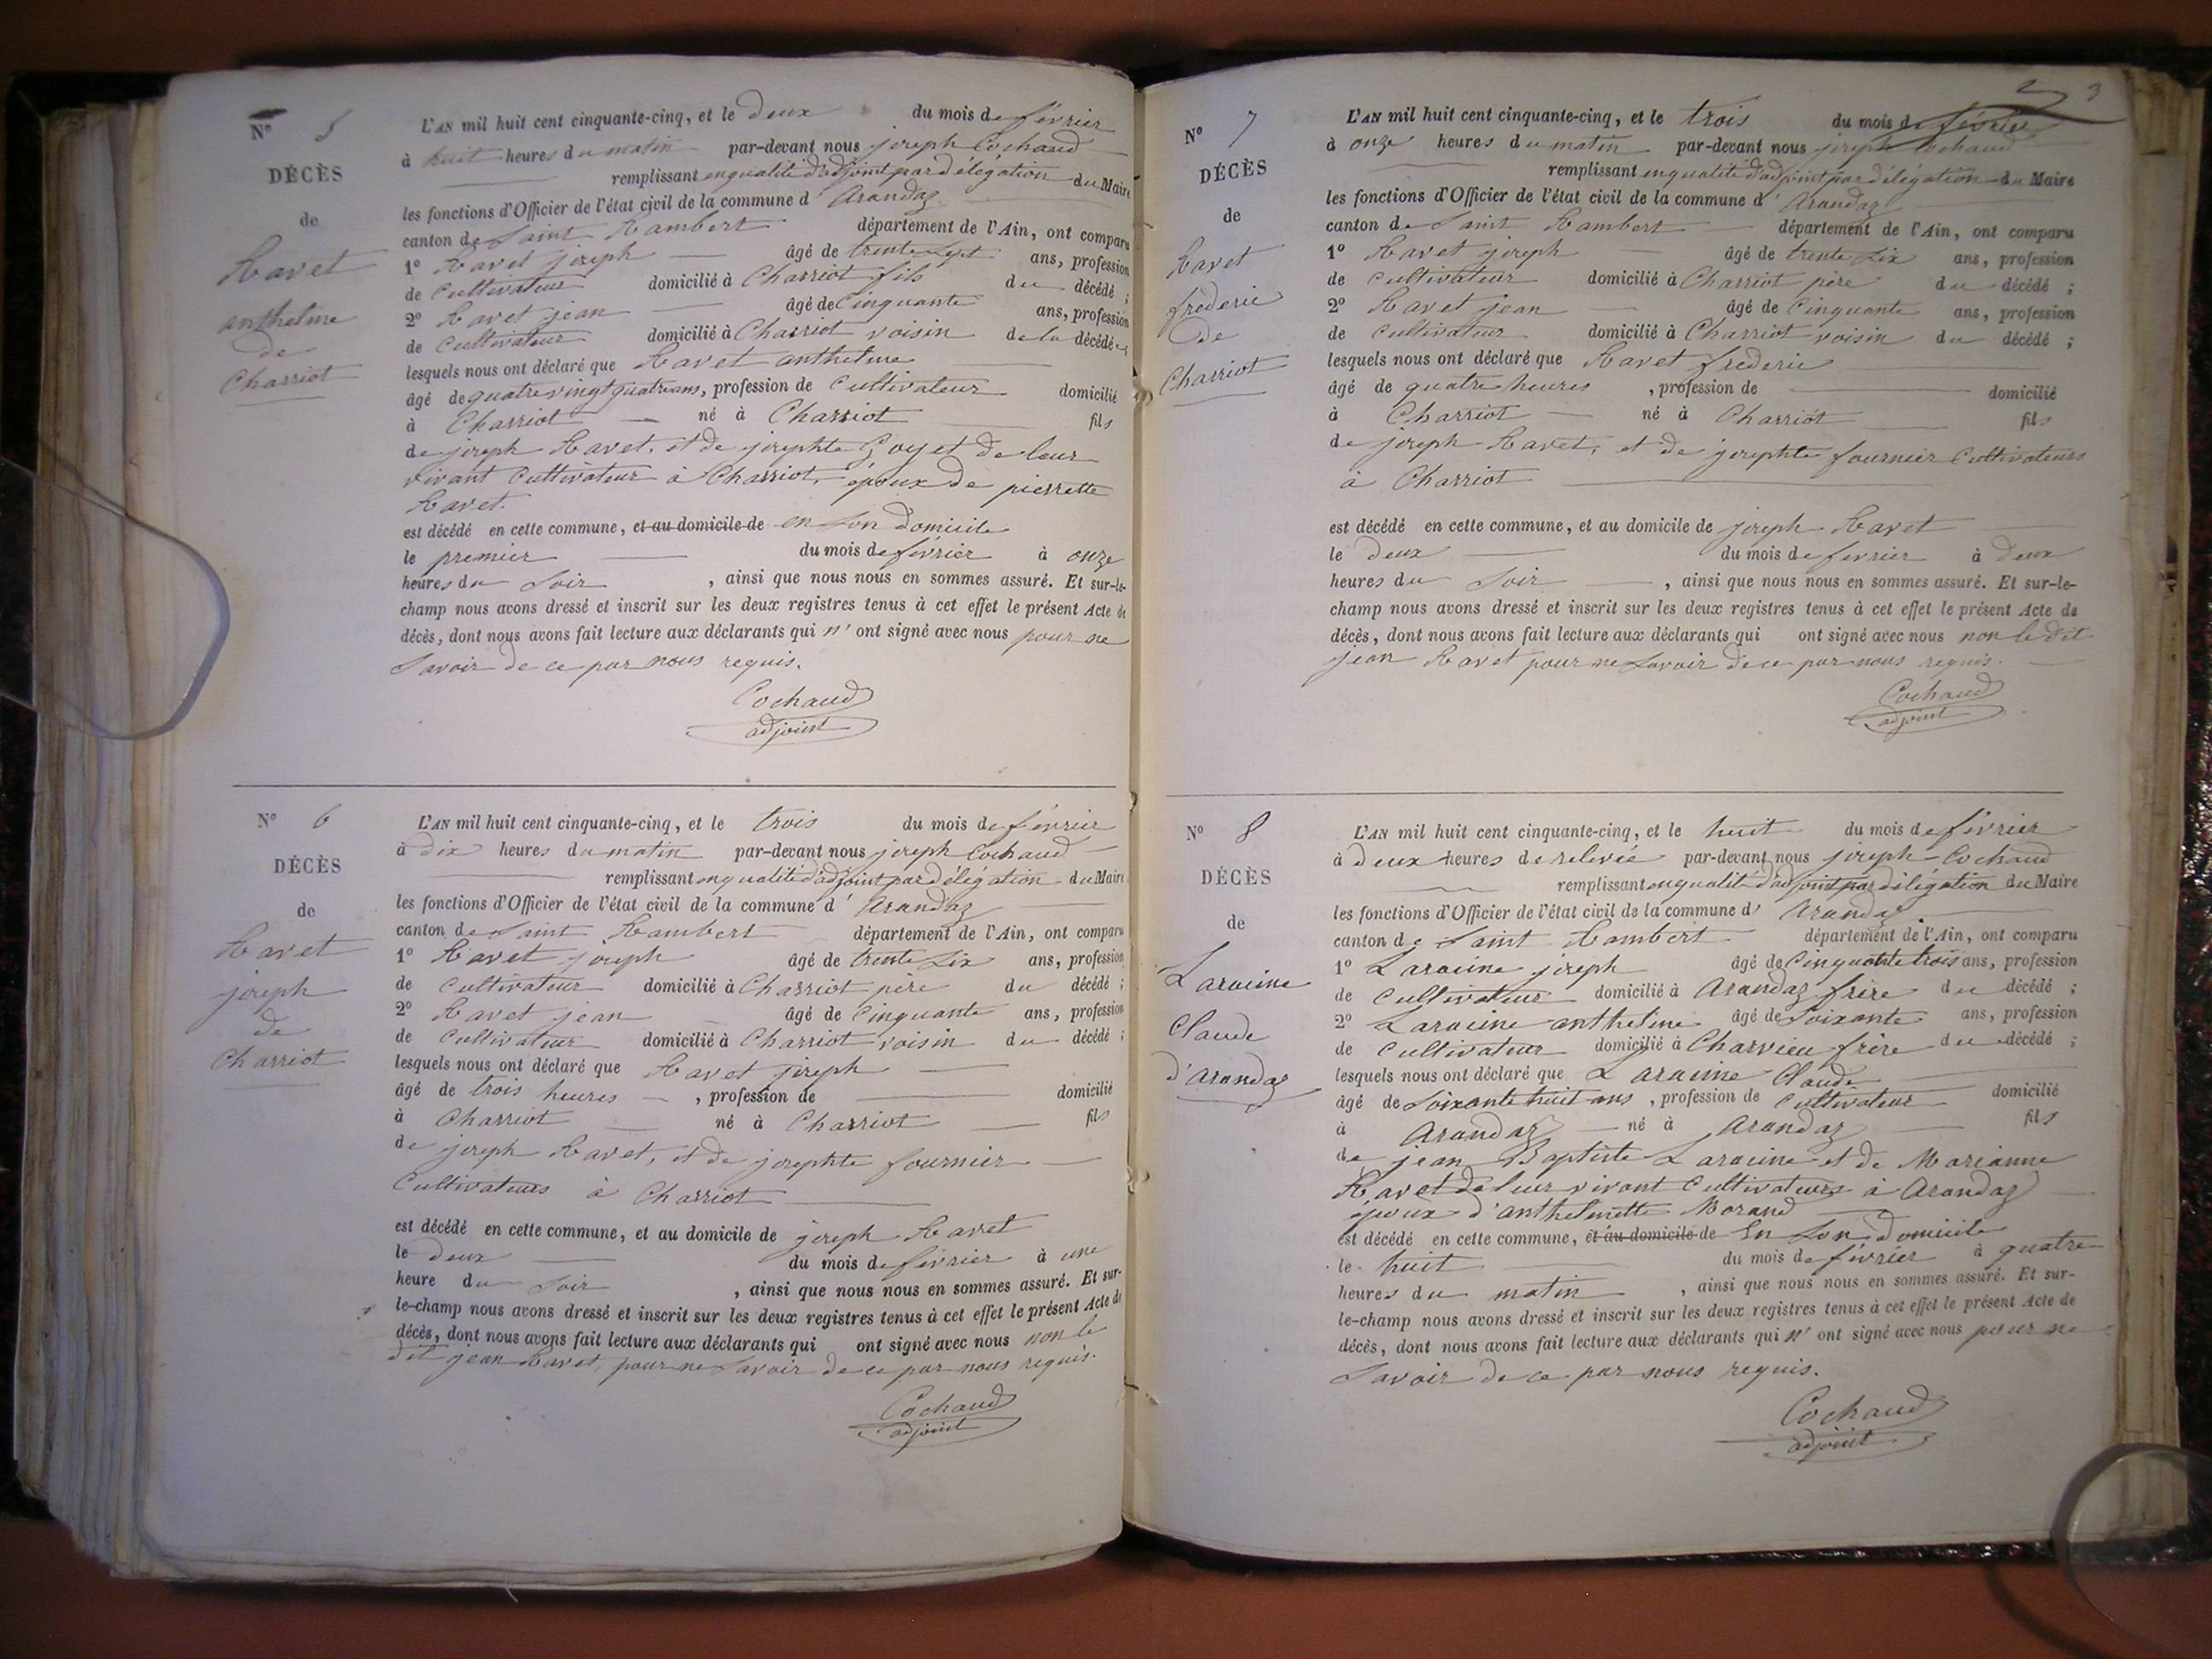 N° 5
DÉCÈS
de
Ravet
anthelme
de
Charriot
L'AN mil huit cent cinquante-cinq, et le deux du mois de février
à huit heures du matin par-devant nous joseph Cochaud
remplissant en qualité d'adjoint par délégation du Maire
les fonctions d'Officier de l'état civil de la commune d' Arandaz
canton de Saint Rambert département de l'Ain, ont comparu
1° Ravet joseph âgé de trente sept ans, profession
de Cultivateur domicilié à Charriot fils du décédé ;
2° Ravet jean âgé de Cinquante ans, profession
de Cultivateur domicilié à Charriot voisin de la décédée,
lesquels nous ont déclaré que Ravet anthelme
âgé de quatre vingt quatre ans, profession de Cultivateur domicilié
à Charriot né à Charriot fils
de joseph Ravet, et de josephte Goyet de leur
vivant Cultivateur à Charriot, époux de pierrette
Ravet.
est décédé en cette commune, et au domicile de en Son Domicile
le premier du mois de février à onze
heures du Soir , ainsi que nous nous en sommes assuré. Et sur-le-
champ nous avons dressé et inscrit sur les deux registres tenus à cet effet le présent Acte de
décès, dont nous avons fait lecture aux déclarants qui n' ont signé avec nous pour ne
Savoir de ce par nous requis.
Cochaud
adjoint
N° 6
DÉCÈS
de
Ravet
joseph
de
Charriot
L'AN mil huit cent cinquante-cinq, et le trois du mois de février
à dix heures du matin par-devant nous joseph Cochaud
remplissant en qualité d'adjoint par délégation du Maire
les fonctions d'Officier de l'état civil de la commune d' Arandaz
canton de Saint Rambert département de l'Ain, ont comparu
1° Ravet joseph âgé de trente Six ans, profession
de Cultivateur domicilié à Charriot père du décédé ;
2° Ravet jean âgé de Cinquante ans, profession
de Cultivateur domicilié à Charriot voisin du décédé ;
lesquels nous ont déclaré que Ravet joseph
âgé de trois heures , profession de domicilié
à Charriot né à Charriot fils
de joseph Ravet, et de josephte fournier
Cultivateurs à Charriot
est décédé en cette commune, et au domicile de joseph Ravet
le deux du mois de février à une
heure du Soir , ainsi que nous nous en sommes assuré. Et sur-
le-champ nous avons dressé et inscrit sur les deux registres tenus à cet effet le présent Acte de
décès, dont nous avons fait lecture aux déclarants qui ont signé avec nous non le
dit jean Ravet, pour ne Savoir de ce par nous requis.
Cochaud
adjoint
3
N° 7
DÉCÈS
de
Ravet
frederic
de
Charriot
L'AN mil huit cent cinquante-cinq, et le trois du mois de février
à onze heures du matin par-devant nous joseph Cochaud
remplissant en qualité d'adjoint par délégation du Maire
les fonctions d'Officier de l'état civil de la commune d' Arandaz
canton de Saint Rambert département de l'Ain, ont comparu
1° Ravet joseph âgé de trente Six ans, profession
de Cultivateur domicilié à Charriot père du décédé ;
2° Ravet jean âgé de Cinquante ans, profession
de Cultivateur domicilié à Charriot voisin du décédé ;
lesquels nous ont déclaré que Ravet frederic
âgé de quatre heures , profession de domicilié
à Charriot né à Charriot fils
de joseph Ravet, et de josephte fournier Cultivateurs
à Charriot
est décédé en cette commune, et au domicile de joseph Ravet
le deux du mois de fevrier à deux
heures du Soir , ainsi que nous nous en sommes assuré. Et sur-le-
champ nous avons dressé et inscrit sur les deux registres tenus à cet effet le présent Acte de
décès, dont nous avons fait lecture aux déclarants qui ont signé avec nous non le dit
jean Ravet pour ne Savoir de ce par nous requis.
Cochaud
adjoint
N° 8
DÉCÈS
de
Laracine
Claude
d'Arandaz
L'AN mil huit cent cinquante-cinq, et le huit du mois de février
à deux heures de relevée par-devant nous joseph Cochaud
remplissant en qualité d'adjoint par délégation du Maire
les fonctions d'Officier de l'état civil de la commune d' Arandaz
canton de Saint Rambert département de l'Ain, ont comparu
1° Laracine joseph âgé de Cinquante trois ans, profession
de Cultivateur domicilié à Arandaz frère du décédé ;
2° Laracine anthelme âgé de Soixante ans, profession
de Cultivateur domicilié à Charvieu frère du décédé ;
lesquels nous ont déclaré que Laracine Claude
âgé de Soixante huit ans , profession de Cultivateur domicilié
à Arandaz né à Arandaz fils
de jean Baptiste Laracine et de Marianne
Ravet de leur vivant Cultivateurs à Arandaz
époux d'anthelmette Morand
est décédé en cette commune, et au domicile de En Son Domicile
le huit du mois de février à quatre
heures du matin , ainsi que nous nous en sommes assuré. Et sur-
le-champ nous avons dressé et inscrit sur les deux registres tenus à cet effet le présent Acte de
décès, dont nous avons fait lecture aux déclarants qui n' ont signé avec nous pour ne
Savoir de ce par nous requis.
Cochaud
adjoint